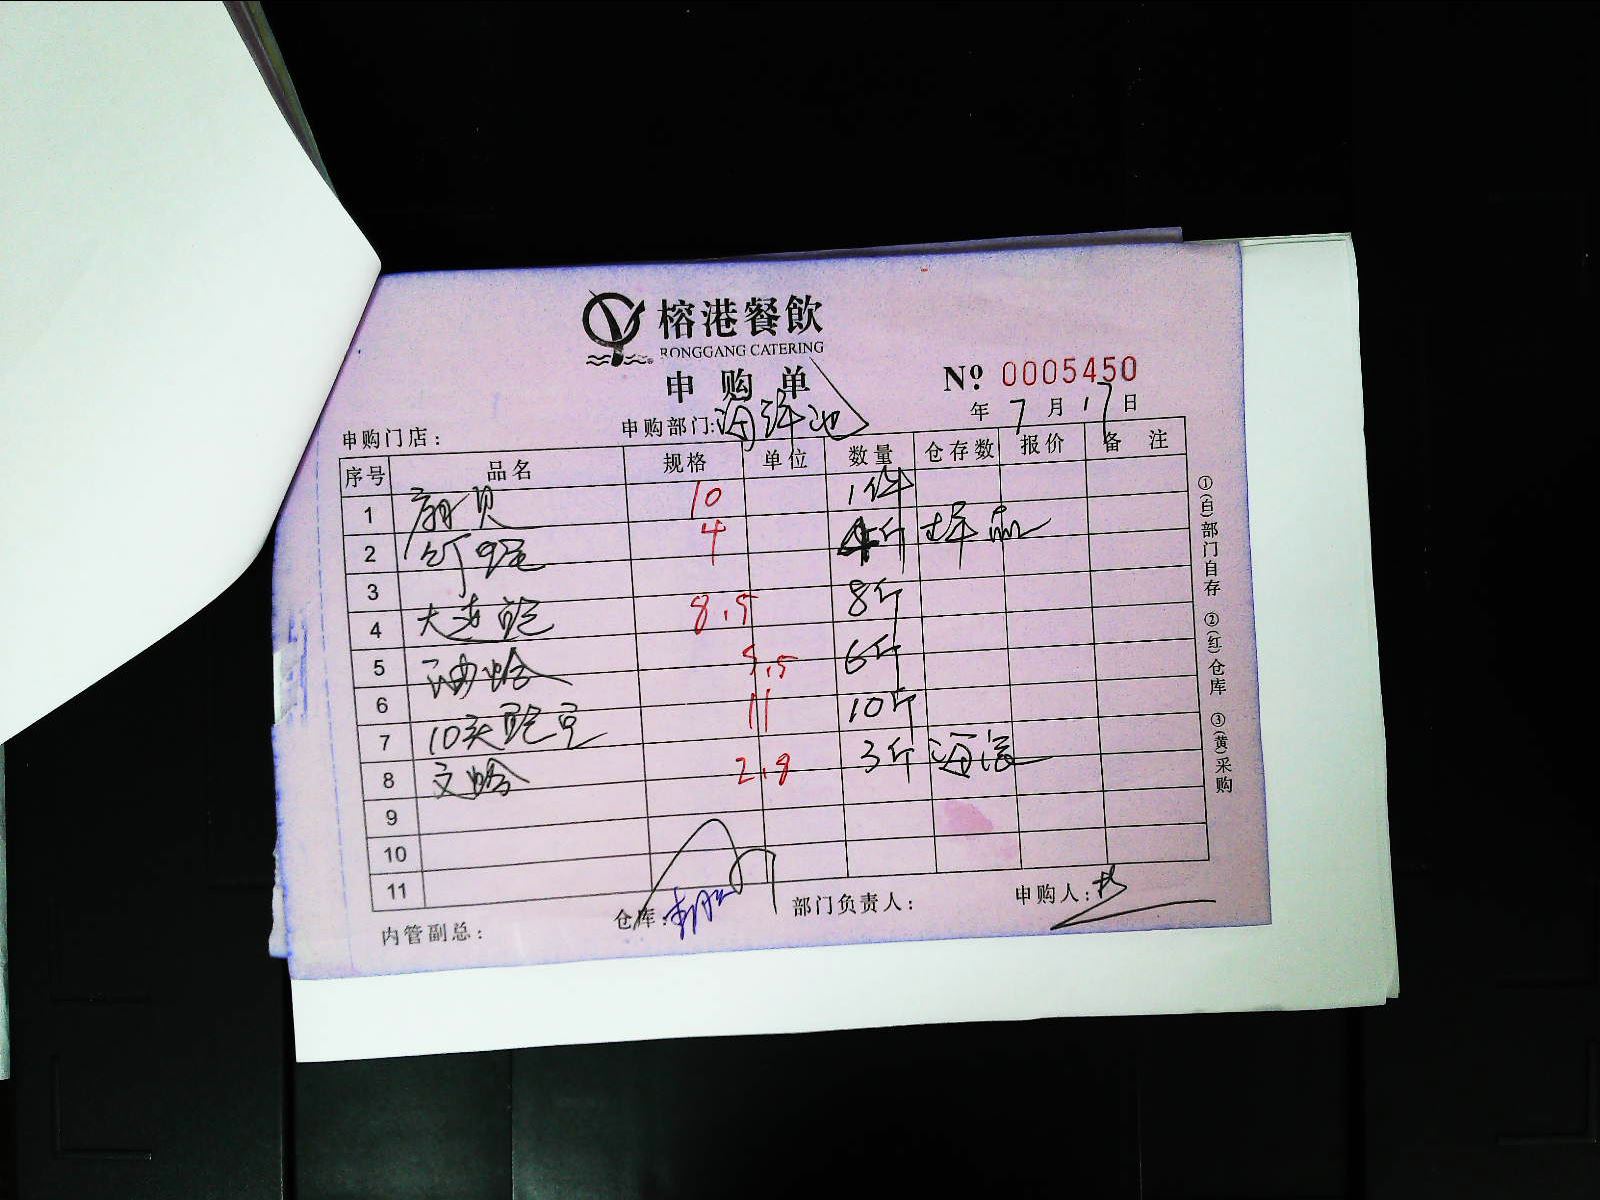 榕港餐飲
RONGGANG CATERING
申购单
№ 0005450
年 7 月 17 日
申购门店： 申购部门: 海鲜池
序号 品名 规格 单位 数量 仓存数 报价 备注
1 扇贝 10 1件
2 4 4斤
3
4 大连鲍 8.5 8斤
5 油蛤 5.5 6斤
6
7 10头鲍 11 10斤
8 文蛤 2.8 3斤
9
10
11
内管副总： 仓库: 部门负责人： 申购人:
①(白)部门自存 ②(红)仓库 ③(黄)采购